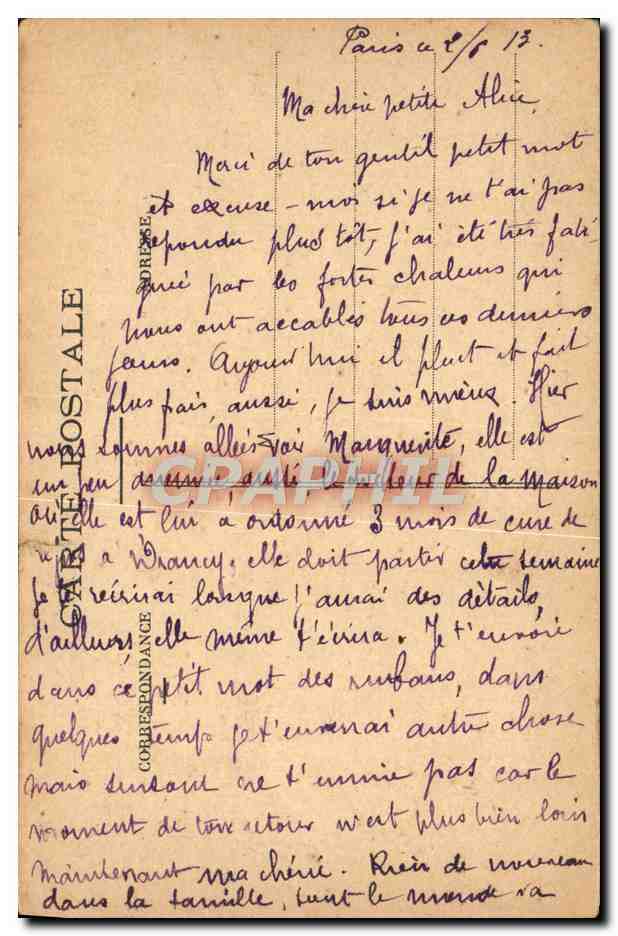 Paris ce 2/6 13.
Ma chère petite Alice,
Merci de ton gentil petit mot
et excuse-moi si je ne t'ai pas
repondu plus tôt, j'ai été très fati-
guée par les fortes chaleurs qui
nous ont accablés tous ces derniers
jours. Aujourd'hui il pleut et fait
plus frais, aussi, je suis mieux. Hier
nous sommes allées voir Marguerite, elle est
un peu anémiée, aussi, le docteur de la maison
où elle est lui a ordonné 3 mois de cure de
à Drancy, elle doit partir cette semaine
Je te récrirai lorsque j'aurai des détails,
d'ailleurs, elle même t'écrira. Je t'envoie
dans ce petit mot des rubans, dans
quelques temps je t'enverrai autre chose
mais surtout ne t'ennuie pas car le
moment de ton retour n'est plus bien loin
maintenant ma chérie. Rien de nouveau
dans la famille, tout le monde va
CARTE POSTALE
CORRESPONDANCE
ADRESSE
CPAPHIL